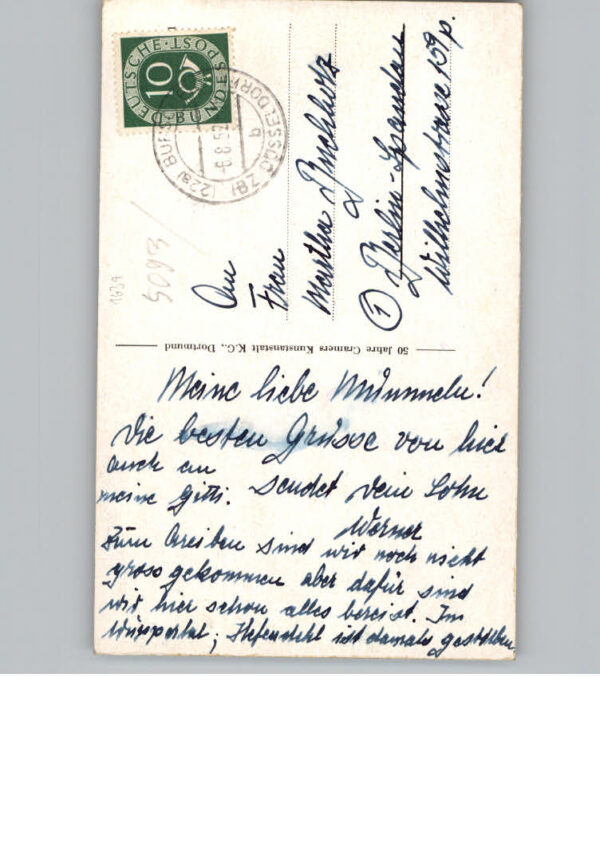 Meine liebe Mümmeln!
Die besten Grüsse von hier
auch an
meine Gitti. Sendet Dein Sohn
Werner
Zum Schreiben sind wir noch nicht
gross gekommen aber dafür sind
wir hier schon alles bereist. Im
Wuppertal; ist damals gestorben.
50 Jahre Cramers Kunstanstalt K.G., Dortmund
An
Frau
Martha Buchholz
① Berlin-Spandau
Wilhelmstrasse 159 p.
DEUTSCHE BUNDESPOST
10
(22a) DÜSSELDORF
b
-6.8.52
5098
1639